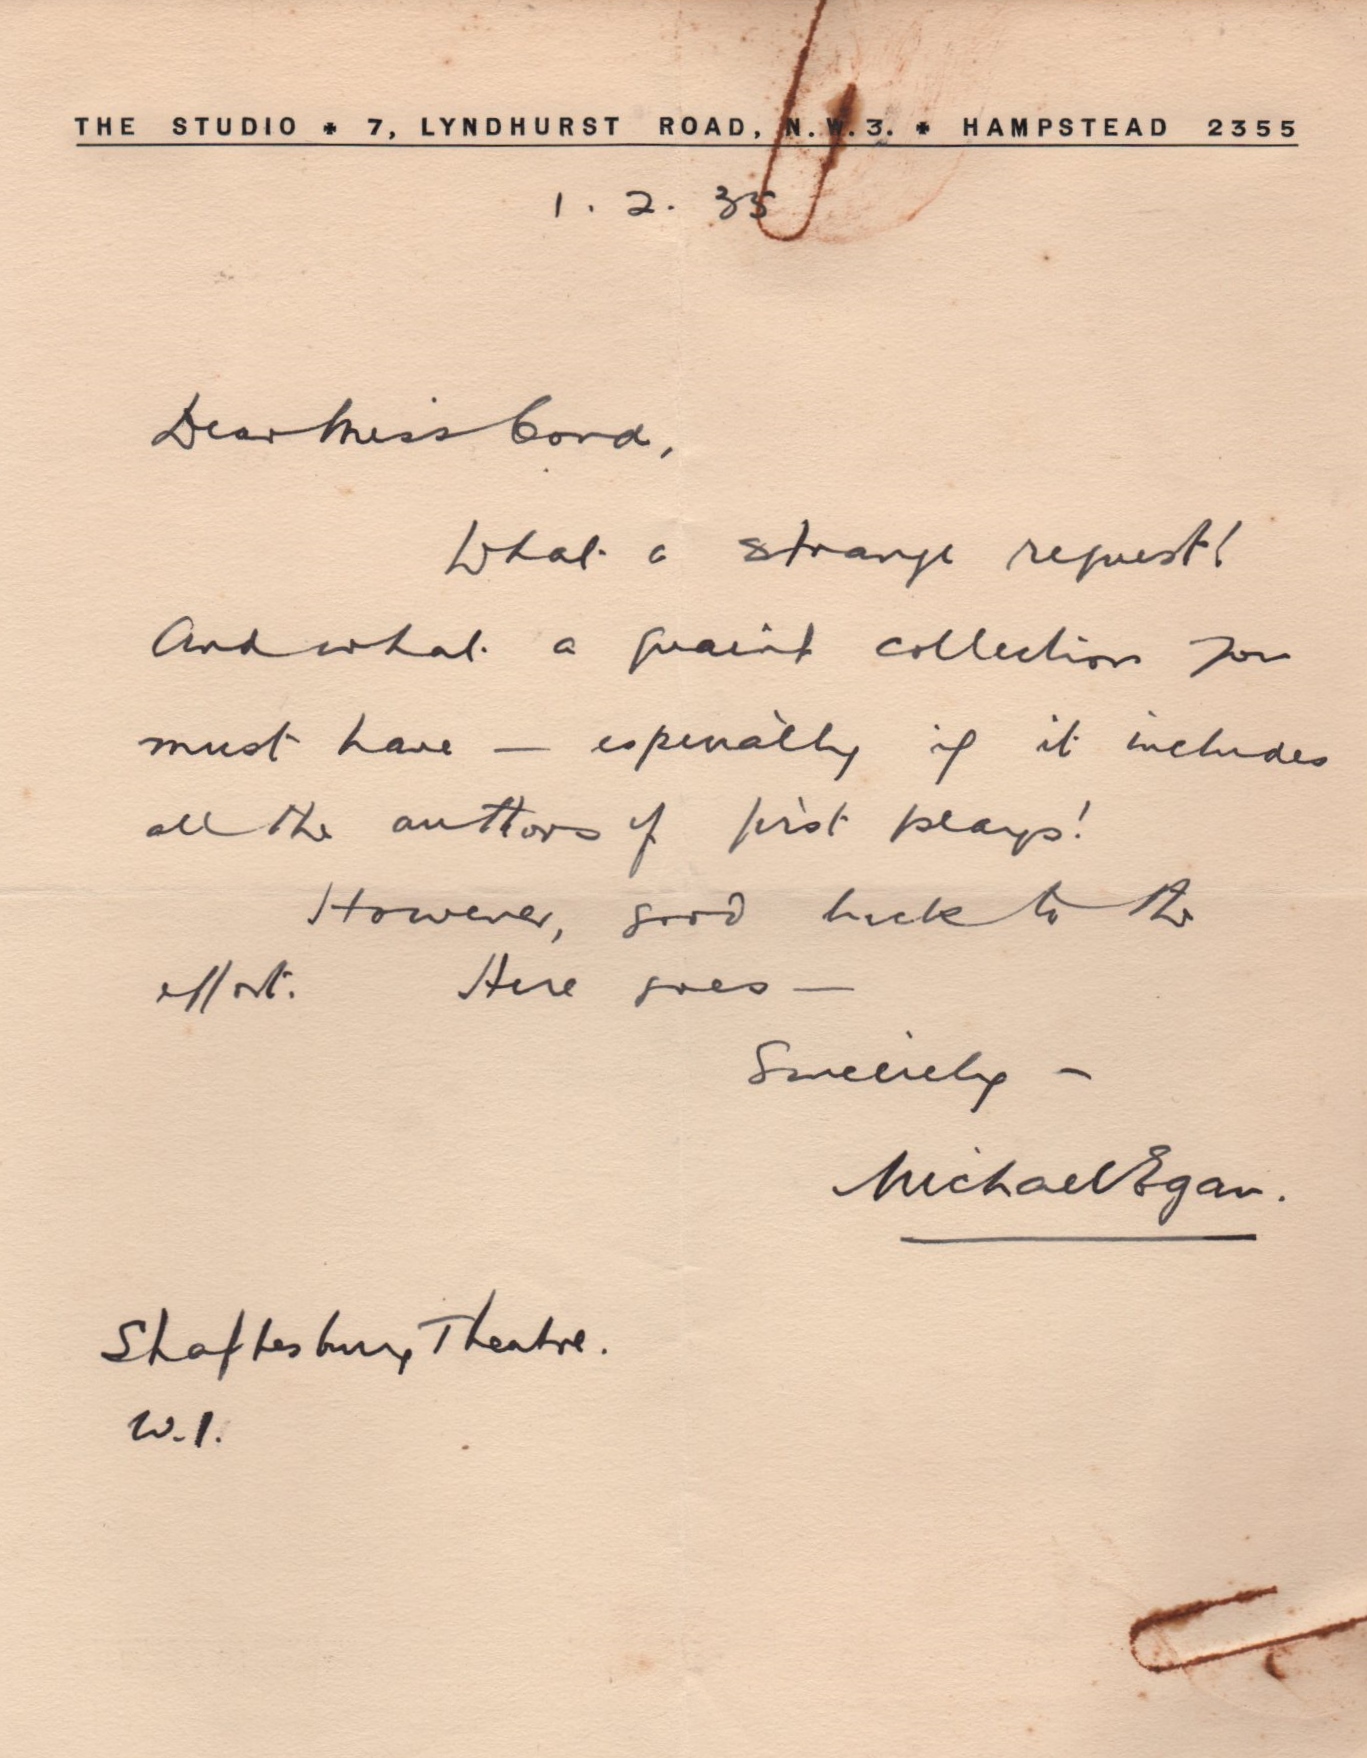 THE STUDIO * 7, LYNDHURST ROAD, N.W.3. * HAMPSTEAD 2355
1. 2. 35
Dear Miss Cord,
What a strange request!
And what a quaint collection you
must have — especially if it includes
all the authors of first plays!
However, good luck to the
effort. Here goes —
Sincerely —
Michael Egan.
Shaftesbury Theatre.
W.1.